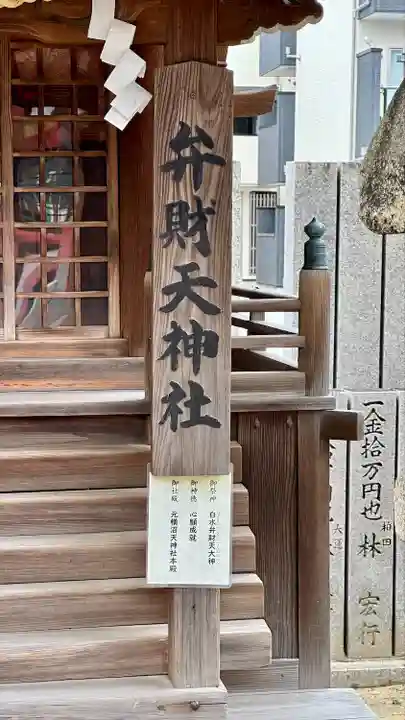 弁財天神社
御祭神 白水弁財天大神
御神徳 心願成就
御社殿 元横沼天神社本殿
一金拾万円也
柏田
林 宏行